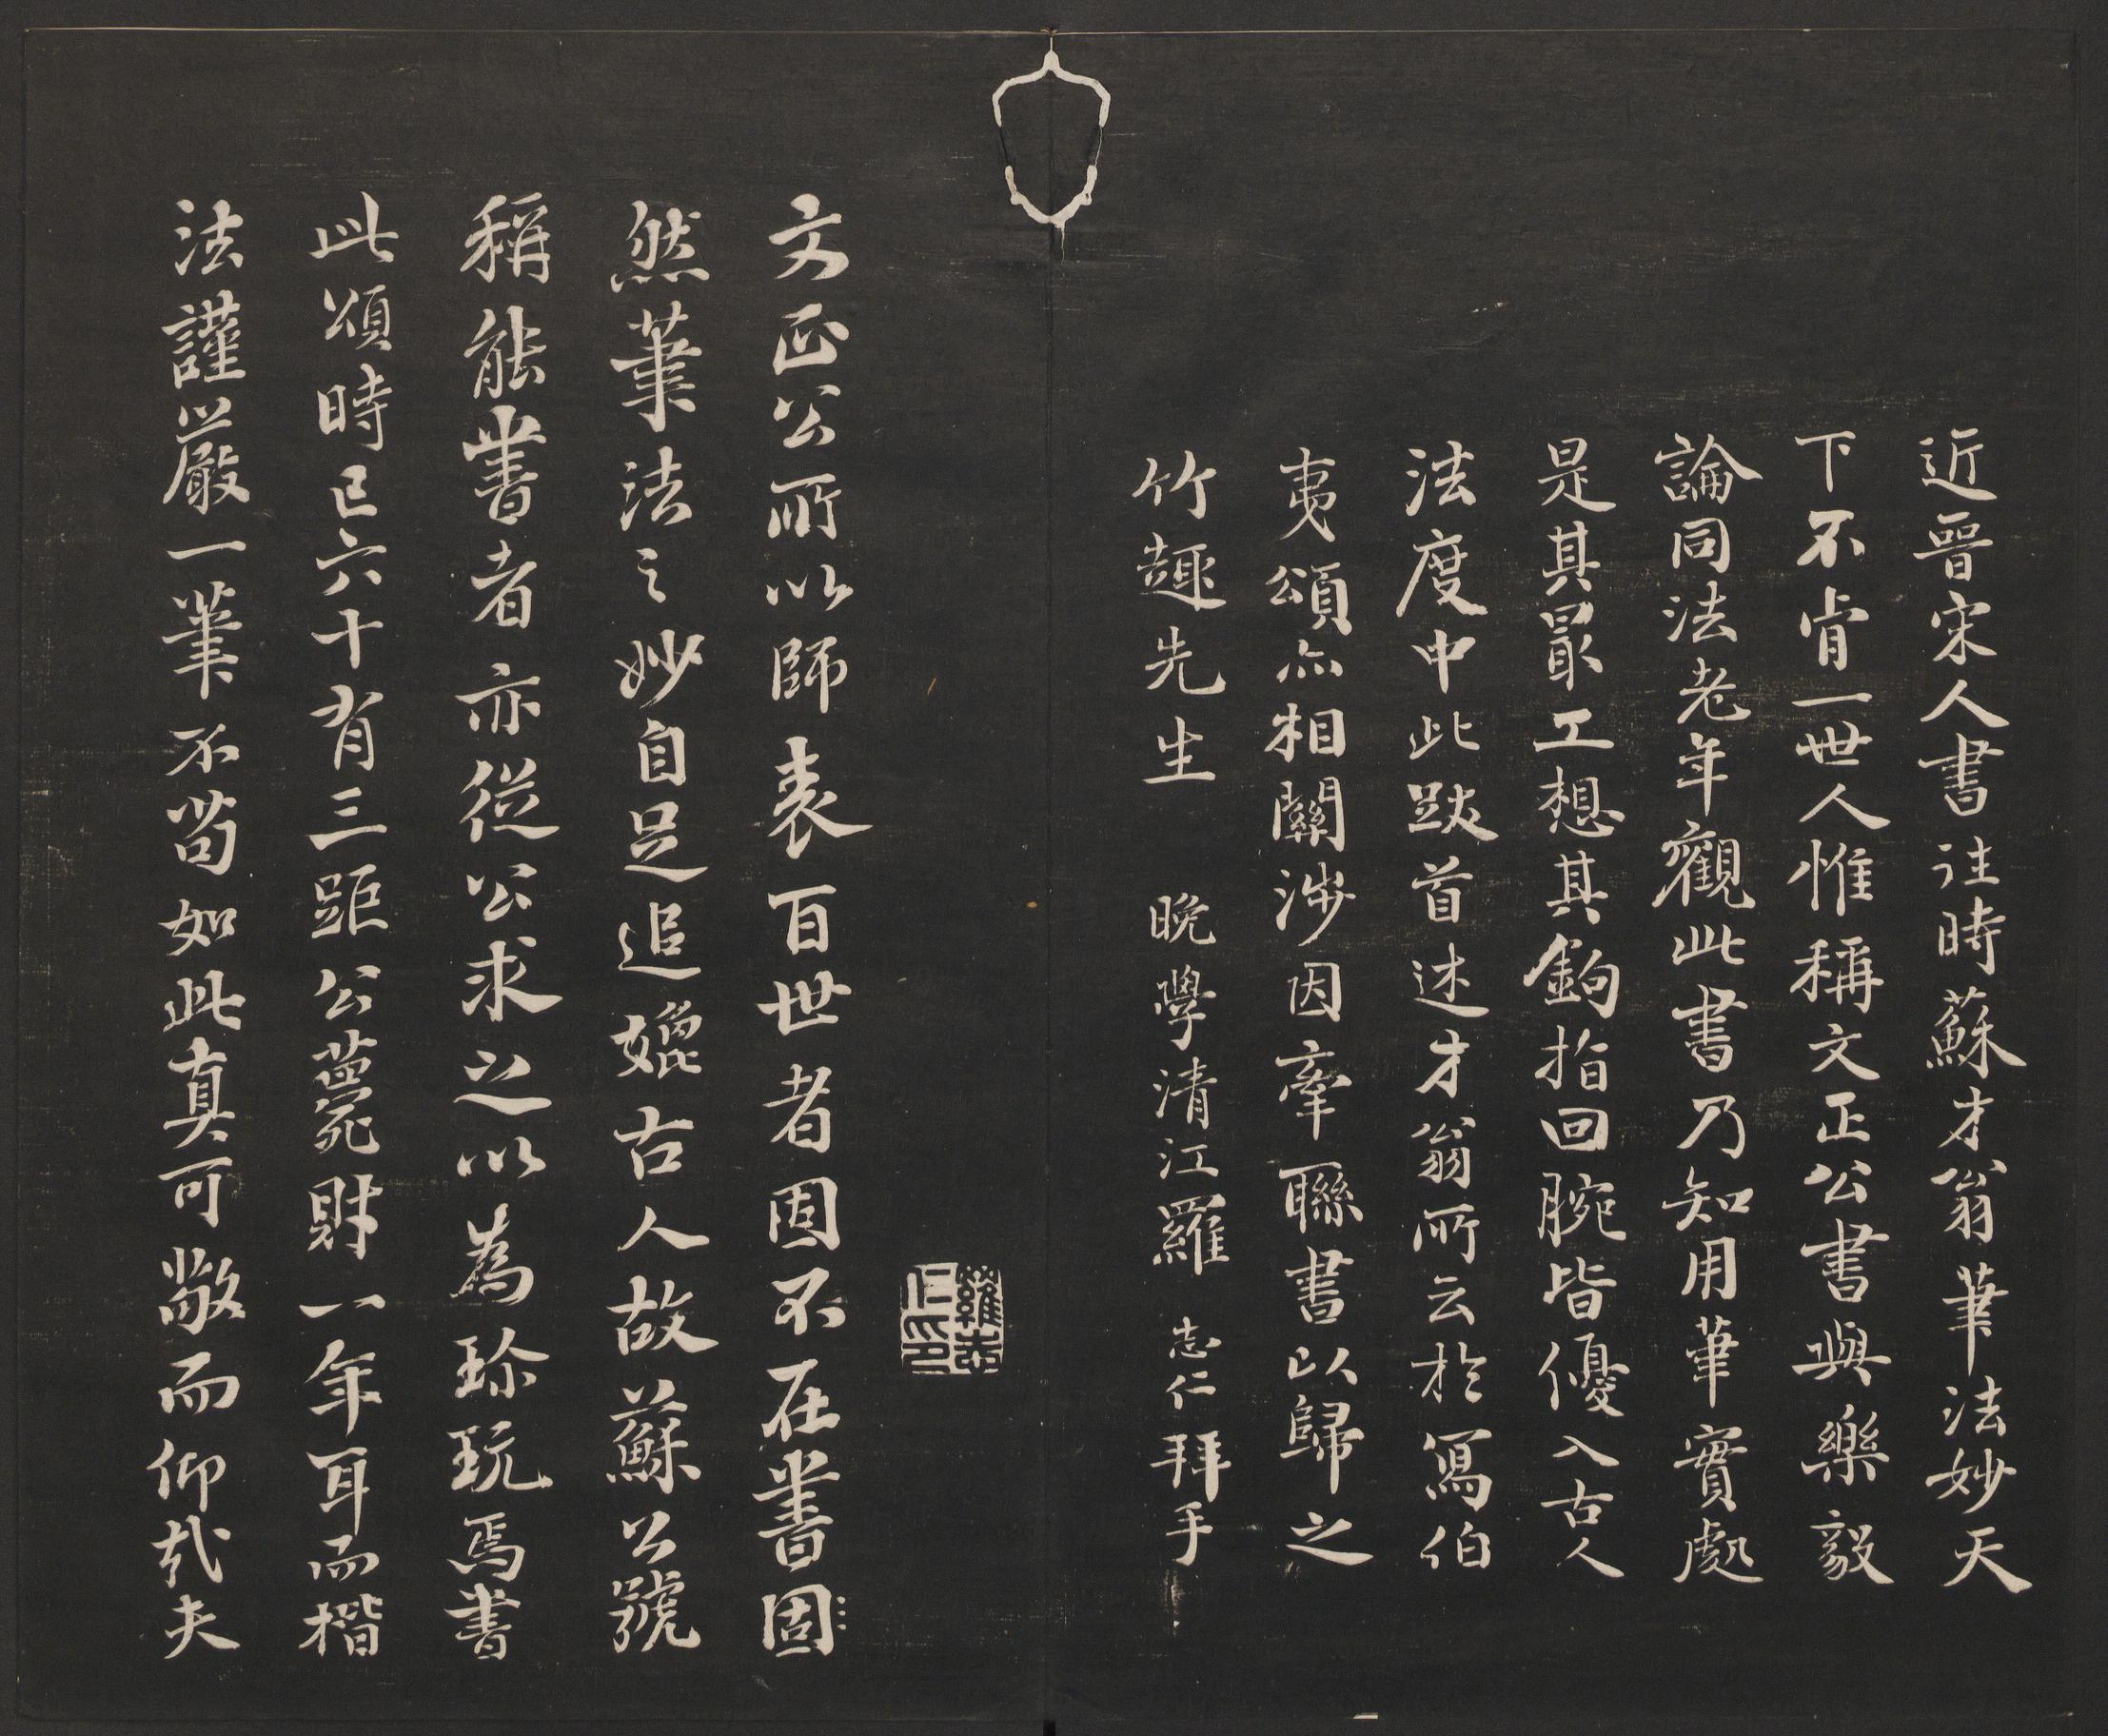 近晉宋人書往時蘇才翁筆法妙天
下不肯一世人惟稱文正公書與樂毅
論同法老年觀此書乃知用筆實處
是其最工想其鉤指回腕皆優入古人
法度中此跋首述才翁所云於寫伯
夷頌亦相關涉因牽聯書以歸之
竹趣先生 晚學清江羅 志仁拜手
羅志仁印
文正公所以師表百世者固不在書固
然筆法之妙自足追媲古人故蘇公號
稱能書者亦從公求之以為珍玩焉書
此頌時已六十有三距公薨財一年耳而楷
法謹嚴一筆不苟如此真可敬而仰哉夫